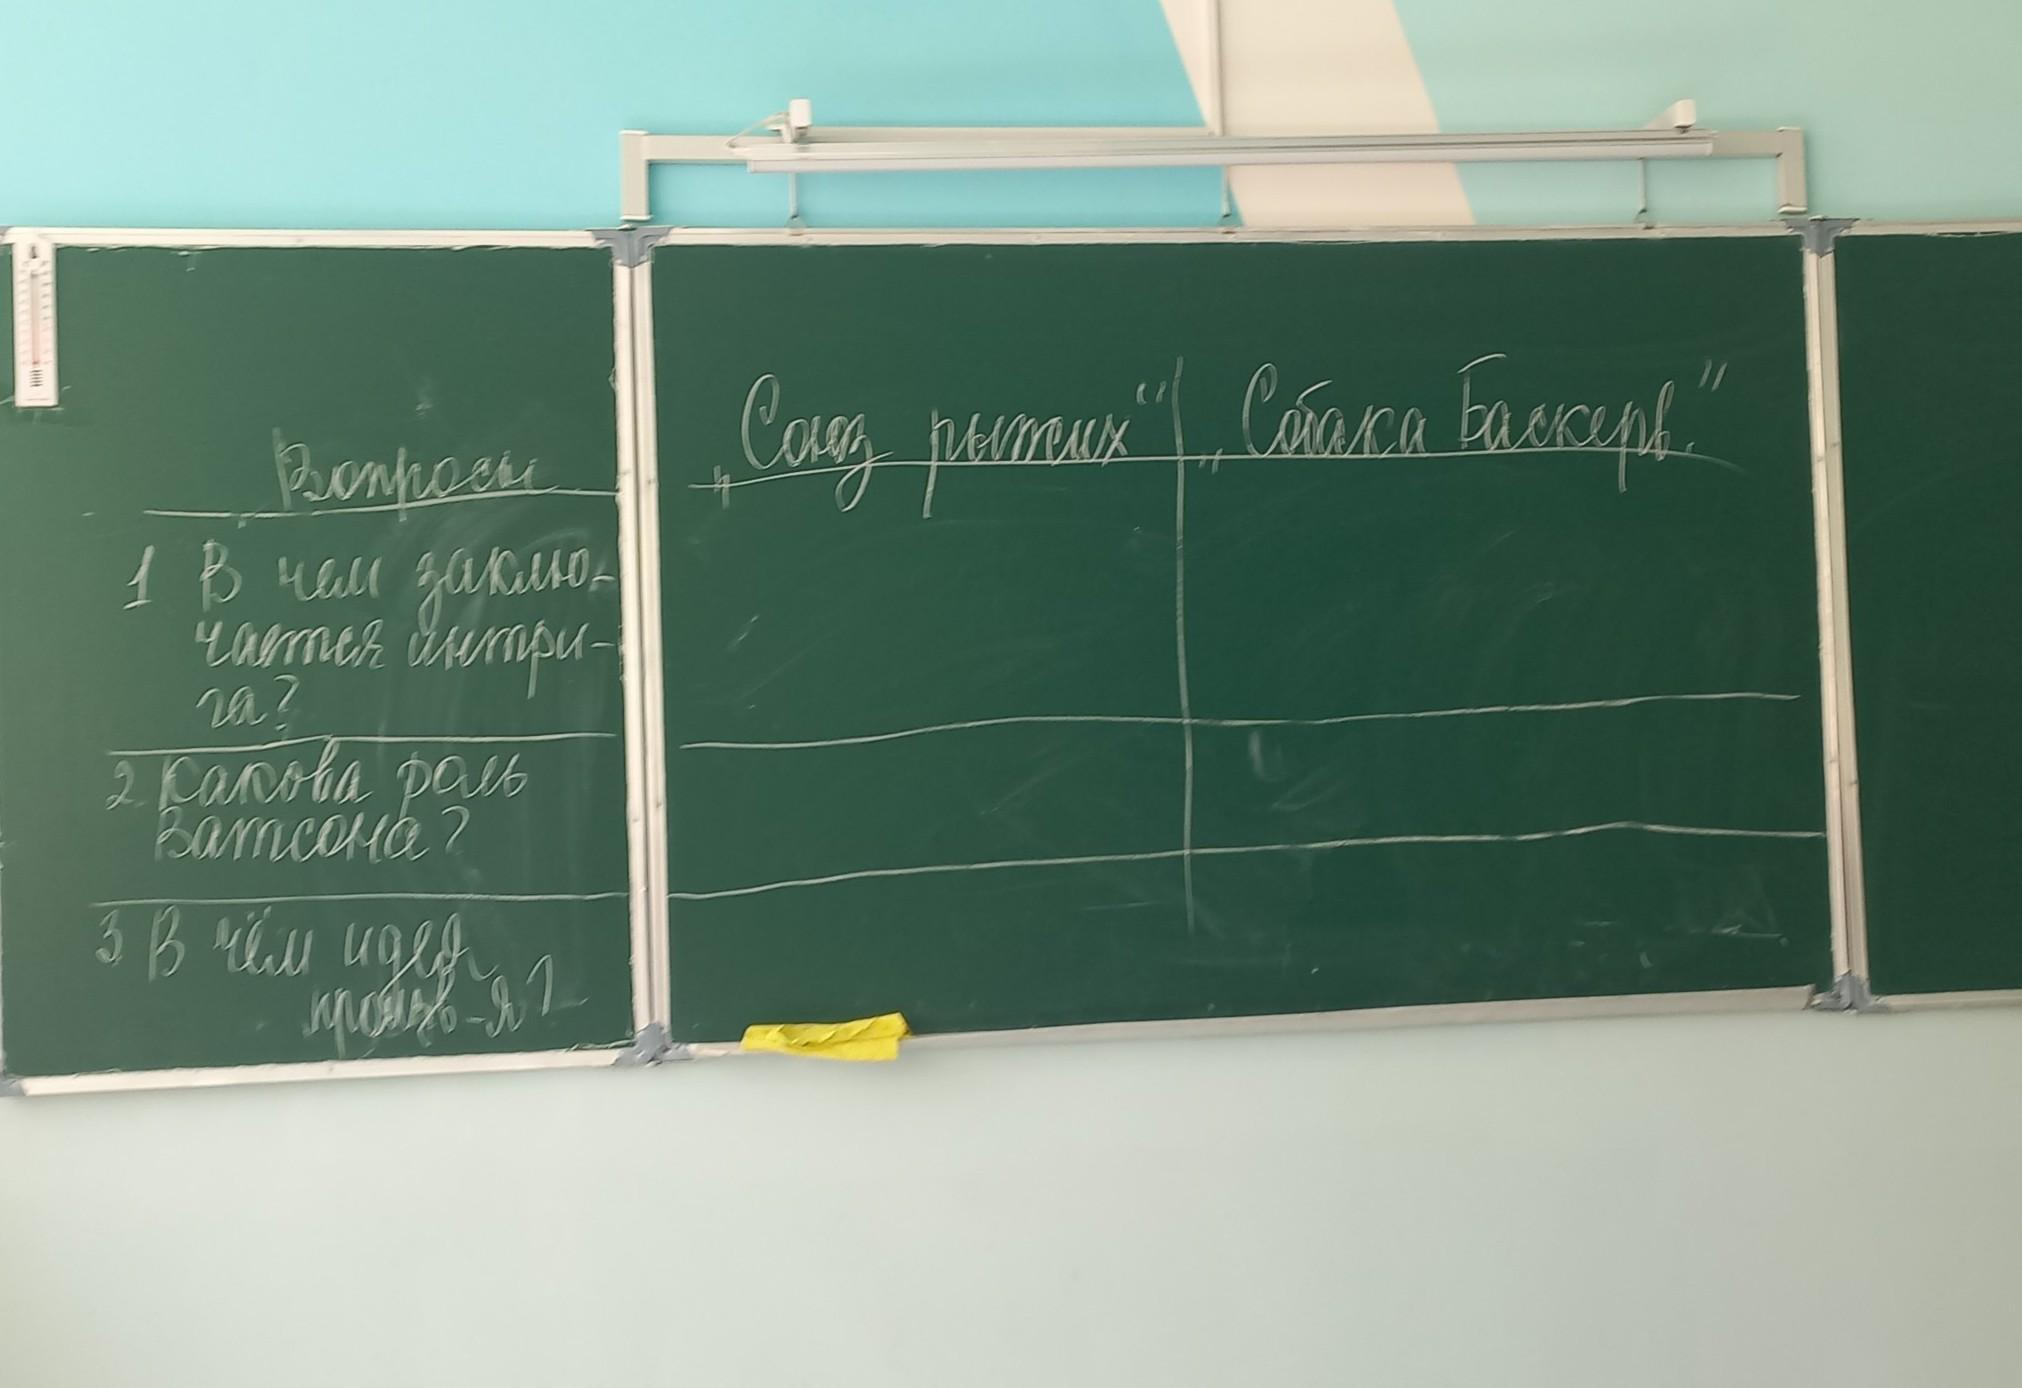 Вопросы
1 В чем заклю-
чается интри-
га?
2. Какова роль
Ватсона?
3 В чём идея
произв-я?
„Союз рыжих“
„Собака Баскерв.”